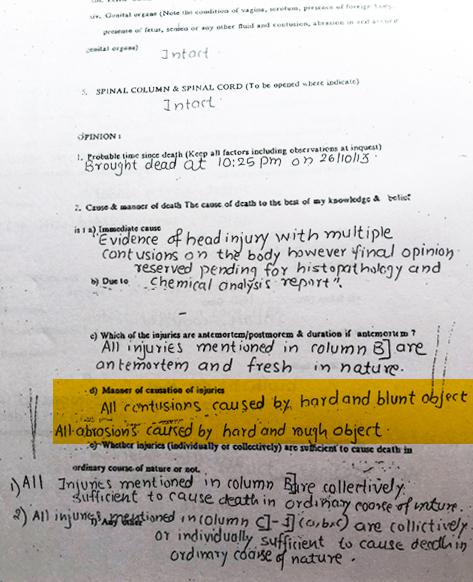 xiv. Genital organs (Note the condition of vagina, scrotum, presence of foreign body,
presence of fetus, semen or any other fluid and contusion, abrasion in and around
genital organs)
Intact
5. SPINAL COLUMN & SPINAL CORD (To be opened where indicate)
Intact
OPINION :
1. Probable time since death (Keep all factors including observations at inquest)
Brought dead at 10:25 pm on 26/10/13.
2. Cause & manner of death The cause of death to the best of my knowledge & belief
is : a) Immediate cause
"Evidence of head injury with multiple
contusions on the body however final opinion
reserved pending for histopathology and
b) Due to chemical analysis report".
c) Which of the injuries are antemortem/postmorem & duration if antemortem ?
All injuries mentioned in column B] are
antemortem and fresh in nature.
d) Manner of causation of injuries
All contusions caused by hard and blunt object
All abrosions caused by hard and rough object.
e) Whether injuries (individually or collectively) are sufficient to cause death in
ordinary course of nature or not.
1) All Injuries mentioned in column B] are collectively
sufficient to cause death in ordinary coorse of nature.
2) All injuries mentioned in column C]-J] (a,b,c) are collictively
or individually sufficient to cause death in
ordinary coorse of nature.